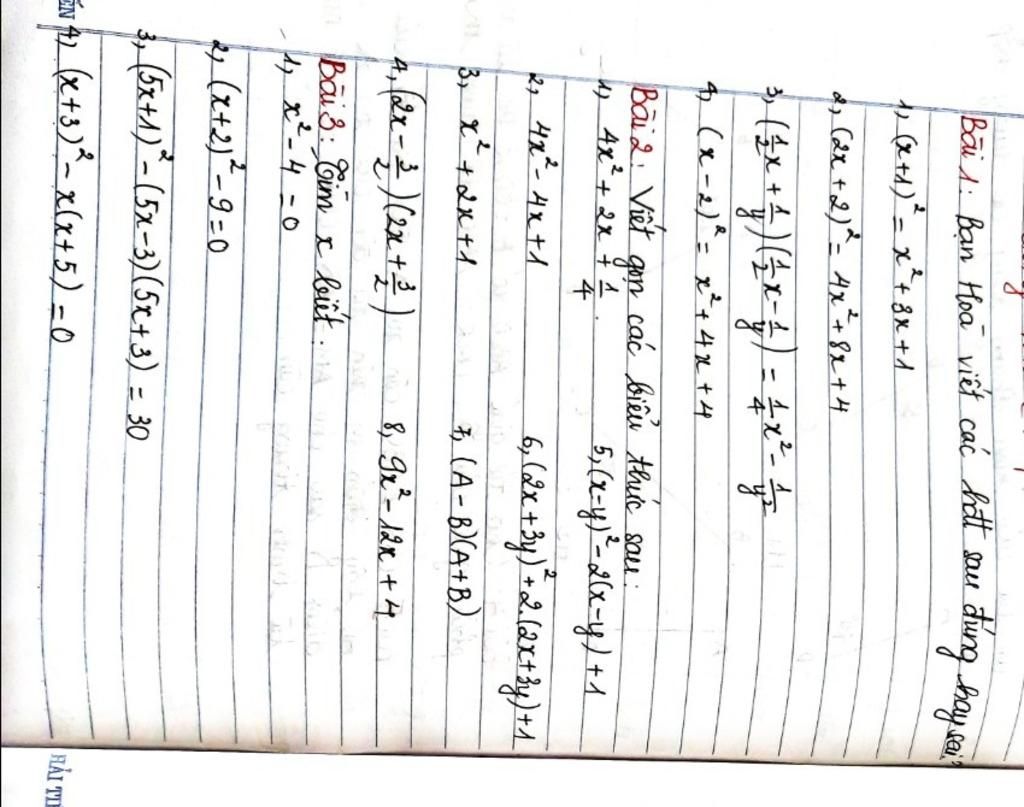 Bài 1: Bạn Hoà viết các hđt sau đúng hay sai?
1, (x+1)² = x² + 3x + 1
2, (2x+2)² = 4x² + 8x + 4
3, (1/2x + 1/y)(1/2x - 1/y) = 1/4x² - 1/y²
4, (x-2)² = x² + 4x + 4
Bài 2: Viết gọn các biểu thức sau:
1, 4x² + 2x + 1/4.
5, (x-y)² - 2(x-y) + 1
2, 4x² - 4x + 1
6, (2x+3y)² + 2.(2x+3y) + 1
3, x² + 2x + 1
7, (A-B)(A+B)
4, (2x - 3/2)(2x + 3/2)
8, 9x² - 12x + 4
Bài 3: Tìm x biết:
1, x² - 4 = 0
2, (x+2)² - 9 = 0
3, (5x+1)² - (5x-3)(5x+3) = 30
4, (x+3)² - x(x+5) = 0
ẾN
HẢI TI